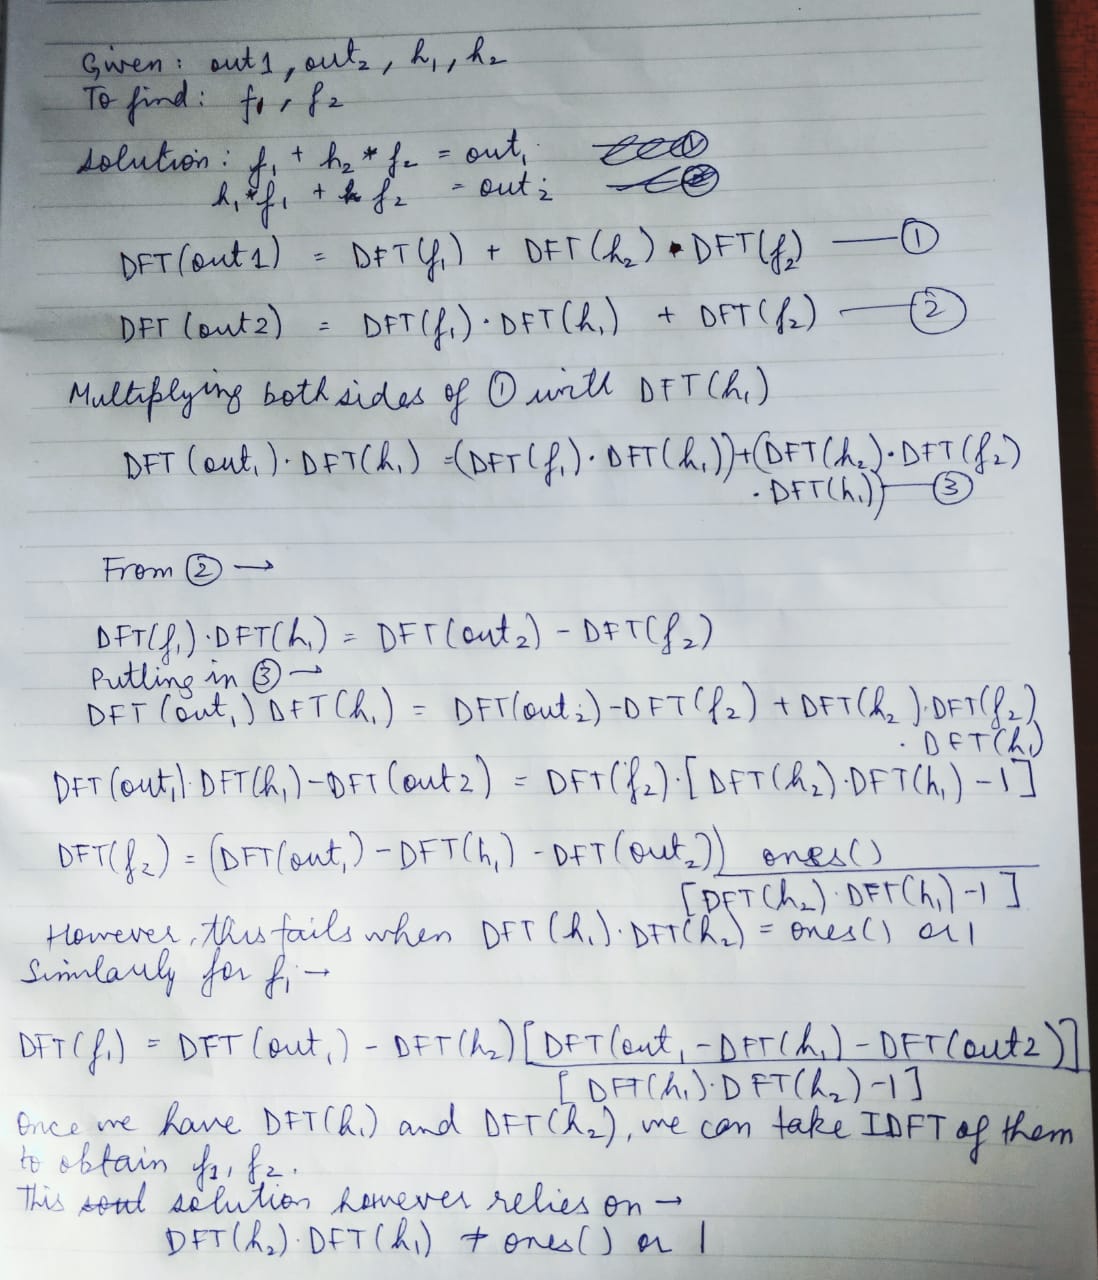 Given : out1, out₂, h₁, h₂
To find : f₁, f₂
Solution : f₁ + h₂ * f₂ = out₁
h₁ * f₁ + f₂ = out₂
DFT(out1) = DFT(f₁) + DFT(h₂) • DFT(f₂) — ①
DFT(out2) = DFT(f₁) · DFT(h₁) + DFT(f₂) — ②
Multiplying both sides of ① with DFT(h₁)
DFT(out₁) · DFT(h₁) = (DFT(f₁) · DFT(h₁)) + (DFT(h₂) · DFT(f₂)
· DFT(h₁)) — ③
From ② →
DFT(f₁) · DFT(h₁) = DFT(out₂) - DFT(f₂)
Putting in ③ →
DFT(out₁) DFT(h₁) = DFT(out₂) - DFT(f₂) + DFT(h₂) · DFT(f₂)
· DFT(h₁)
DFT(out₁) · DFT(h₁) - DFT(out2) = DFT(f₂) · [DFT(h₂) · DFT(h₁) - 1]
DFT(f₂) = (DFT(out₁) - DFT(h₁) - DFT(out₂)) ones()
[DFT(h₂) · DFT(h₁) - 1]
However, this fails when DFT(h₁) · DFT(h₂) = ones() or 1
Similarly for f₁ →
DFT(f₁) = DFT(out₁) - DFT(h₂) [DFT(out₁ - DFT(h₁) - DFT(out2)]
[DFT(h₁) · DFT(h₂) - 1]
Once we have DFT(h₁) and DFT(h₂), we can take IDFT of them
to obtain f₁, f₂.
This solution however relies on →
DFT(h₂) · DFT(h₁) ≠ ones() or 1